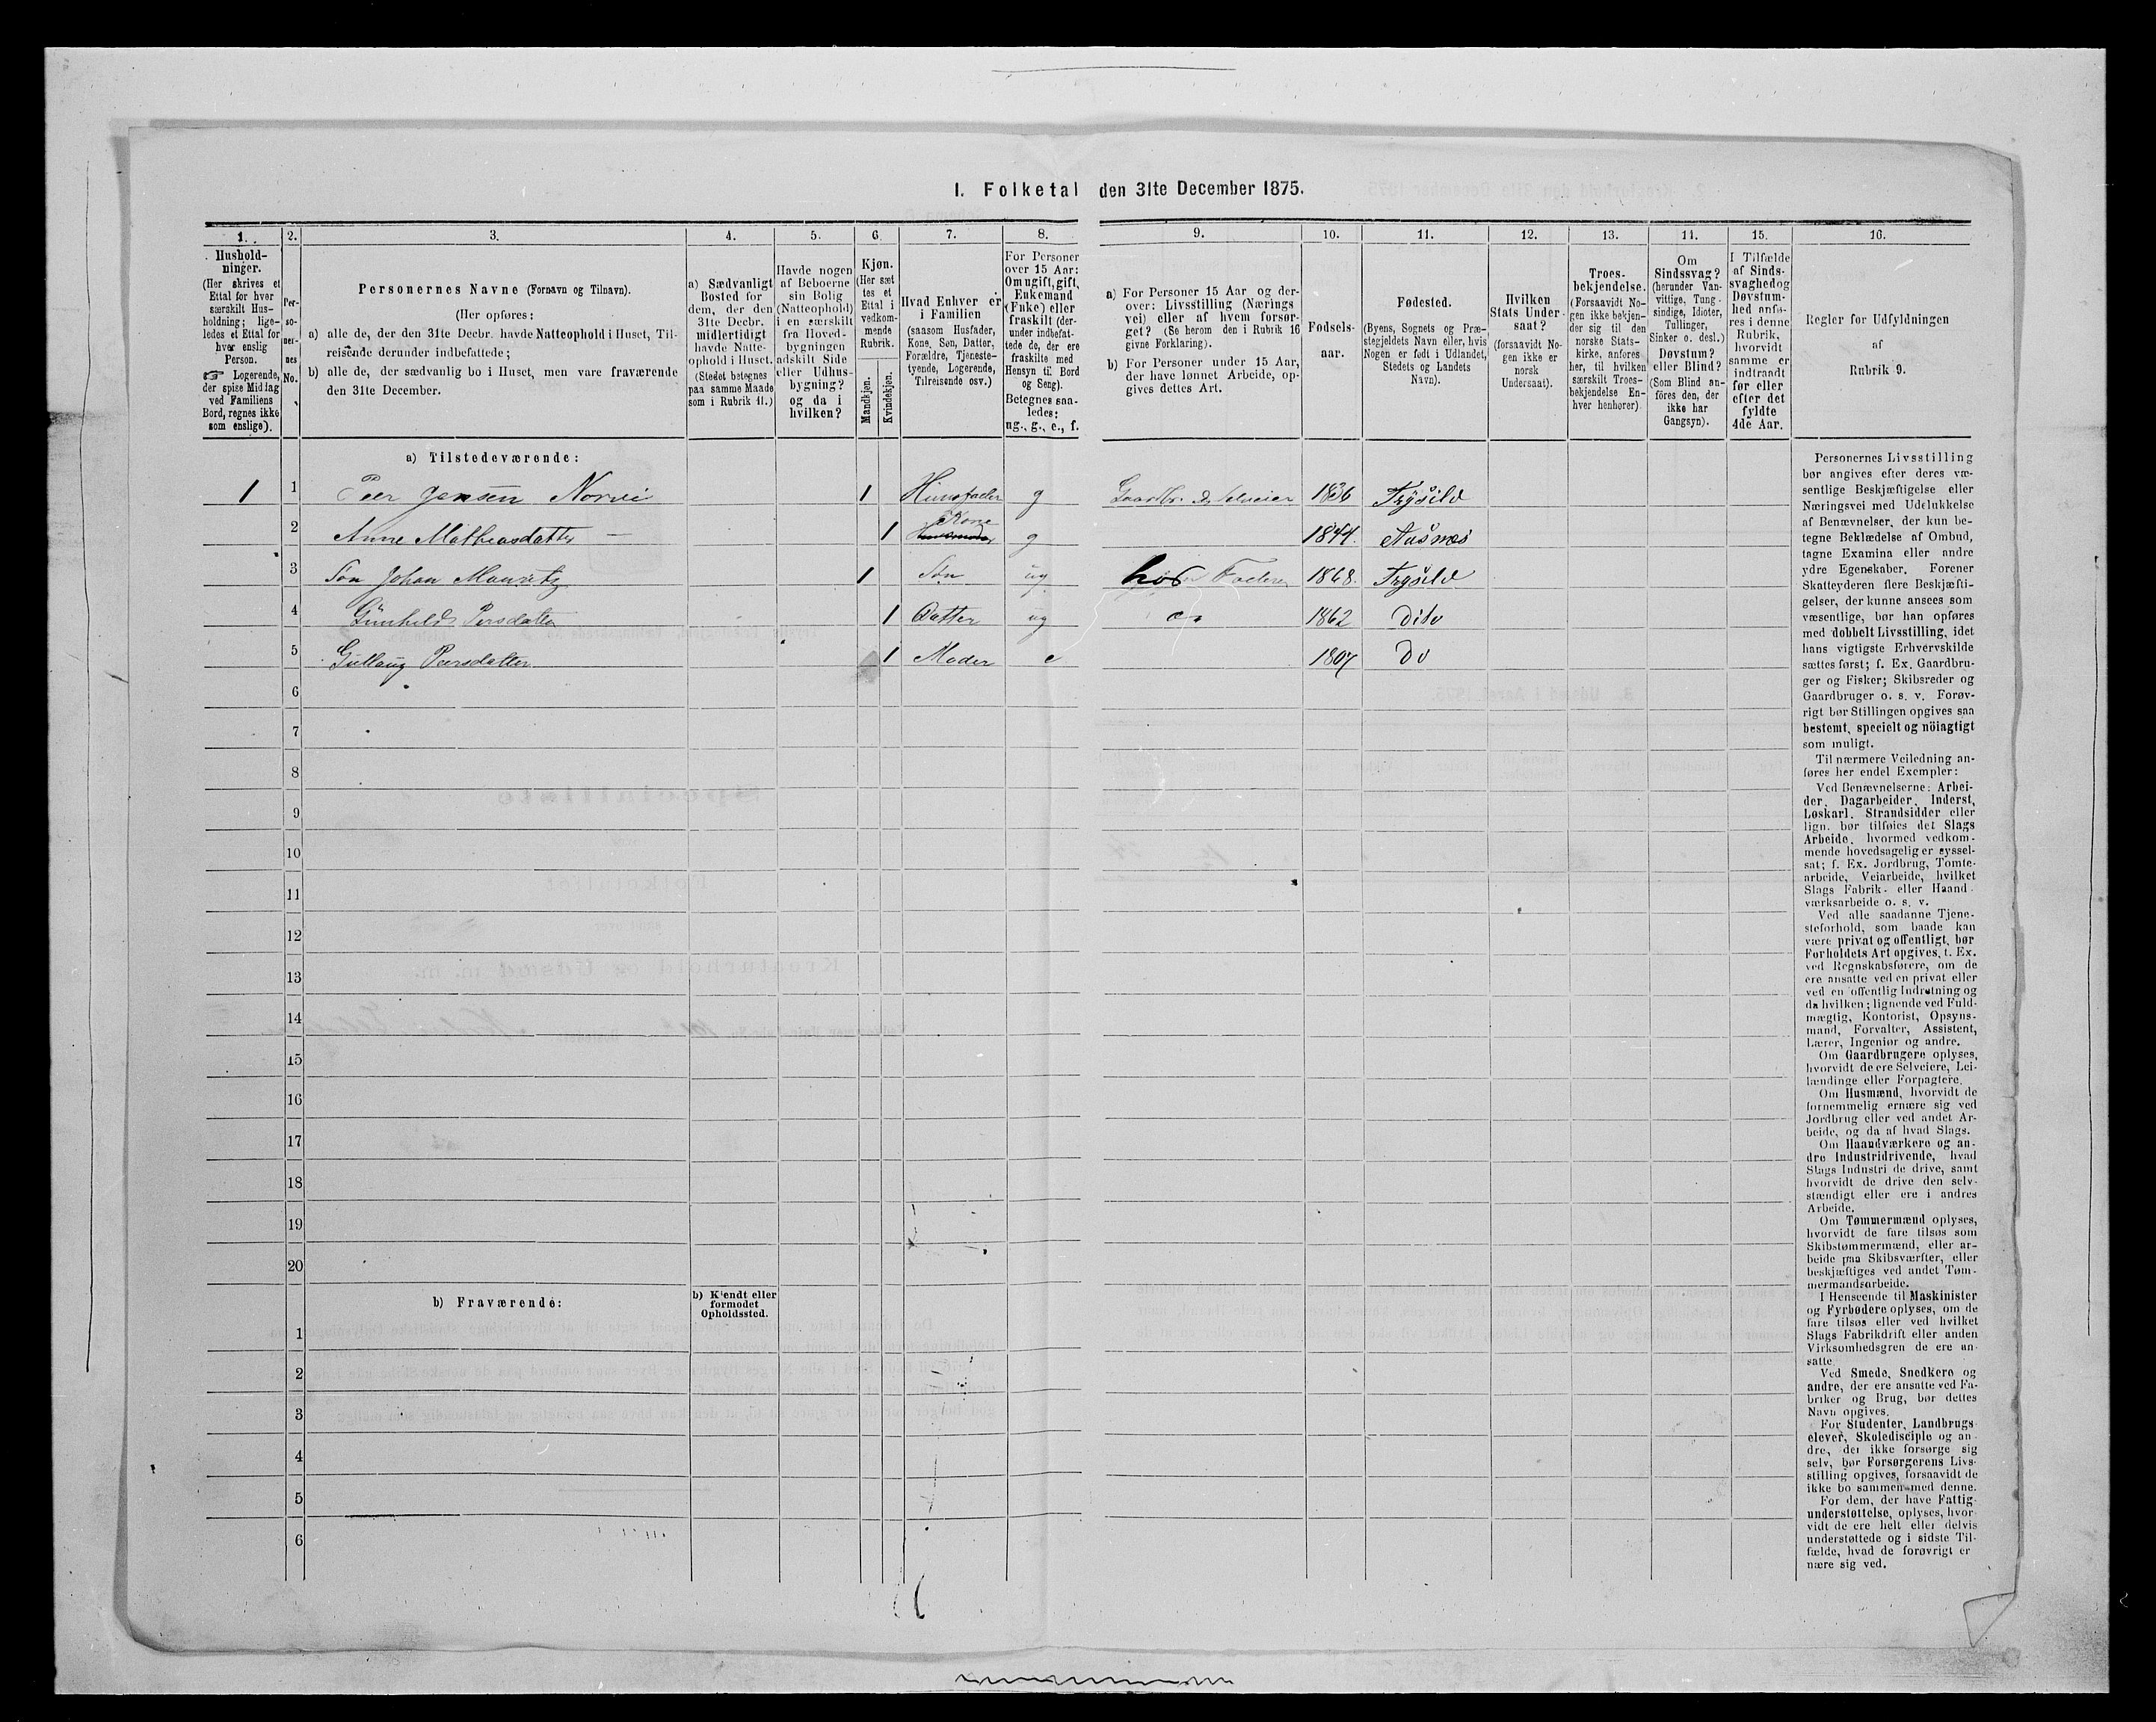 I. Folketal den 31te December 1875.
1. 2. 3. 4. 5. 6. 7. 8. 9. 10. 11. 12. 13. 14. 15. 16.
Hushold-
ninger.
(Her skrives et
Ettal for hver
særskilt Hus-
holdning; lige-
ledes et Ettal for
hver enslig
Person.
☞ Logerende,
der spise Middag
ved Familiens
Bord, regnes ikke
som enslige).
Per-
so-
ner-
nes
No.
Personernes Navne (Fornavn og Tilnavn).
(Her opføres:
a) alle de, der den 31te Decbr. havde Natteophold i Huset, Til-
reisende derunder indbefattede;
b) alle de, der sædvanlig bo i Huset, men vare fraværende
den 31te December.
a) Sædvanligt
Bosted for
dem, der den
31te Decbr.
midlertidigt
havde Natte-
ophold i Huset.
(Stedet betegnes
paa samme Maade
som i Rubrik 11.)
Havde nogen
af Beboerne
sin Bolig
(Natteophold)
i en særskilt
fra Hoved-
bygningen
adskilt Side
eller Udhus-
bygning?
og da i
hvilken?
Kjøn.
(Her sæt
tes et
Ettal i
vedkom-
mende
Rubrik.
Mandkjøn.
Kvindekjøn.
Hvad Enhver er
i Familien
(saasom Husfader,
Kone, Søn, Datter,
Forældre, Tjeneste-
tyende, Logerende,
Tilreisende osv.)
For Personer
over 15 Aar:
Om ugift, gift,
Enkemand
(Enke) eller
fraskilt (der-
under indbefat-
tede de, der ere
fraskilte med
Hensyn til Bord
og Seng).
Betegnes saa-
ledes:
ug., g., e., f.
a) For Personer 15 Aar og der-
over: Livsstilling (Nærings
vei) eller af hvem forsør-
get? (Se herom den i Rubrik 16
givne Forklaring).
b) For Personer under 15 Aar,
der have lønnet Arbeide, op-
gives dettes Art.
Fødsels-
aar.
Fødested.
(Byens, Sognets og Præ-
stegjeldets Navn eller, hvis
Nogen er født i Udlandet,
Stedets og Landets
Navn).
Hvilken
Stats Under-
saat?
(forsaavidt No-
gen ikke er
norsk
Undersaat).
Troes-
bekjendelse.
(Forsaavidt No-
gen ikke bekjen-
der sig til den
norske Stats-
kirke, anføres
her, til hvilken
særskilt Troes-
bekjendelse En-
hver henhører)
Om
Sindssvag?
(herunder Van-
vittige, Tung-
sindige, Idioter,
Tullinger,
Sinker o. desl.)
Døvstum?
eller Blind?
(Som Blind an-
föres den, der
ikke har
Gangsyn).
I Tilfælde
af Sinds-
svaghed og
Døvstum-
hed anfø-
res i denne
Rubrik,
hvorvidt
samme er
indtraadt
før eller
efter det
fyldte
4de Aar.
Regler for Udfyldningen
af
Rubrik 9.
a) Tilstedeværende:
1 1 Peer Jensen Norvi 1 Huusfader g Gaardbr. & Selveier 1836 Trysild
2 Anne Mathiasdatter — 1 Kone g 1844. Aasnæs
3 Søn Johan Mauritz 1 Søn ug. Faderen 1868. Trysild
4 Gunhild Persdatter 1 Datter ug 1862 Dito
5 Gullaug Peersdatter 1 Moder e 1807 Do
6
7
8
9
10
11
12
13
14
15
16
17
18
19
20
b) Fraværende:
b) Kjendt eller
formodet
Opholdssted.
1
2
3
4
5
6
Personernes Livsstilling
bør angives efter deres væ-
sentlige Beskjæftigelse eller
Næringsvei med Udelukkelse
af Benævnelser, der kun be-
tegne Beklædelse af Ombud,
tagne Examina eller andre
ydre Egenskaber. Forener
Skatteyderen flere Beskjæfti-
gelser, der kunne ansees som
væsentlige, bør han opføres
med dobbelt Livsstilling, idet
hans vigtigste Erhvervskilde
sættes først; f. Ex. Gaardbru-
ger og Fisker; Skibsreder og
Gaardbruger o. s. v. Forøv-
rigt bør Stillingen opgives saa
bestemt, specielt og nöiagtigt
som muligt.
Til nærmere Veiledning an-
føres her endel Exempler:
Ved Benævnelserne: Arbei-
der, Dagarbeider, Inderst,
Løskarl, Strandsidder eller
lign. bør tilføies det Slags
Arbeide, hvormed vedkom-
mende hovedsagelig er syssel-
sat; f. Ex. Jordbrug, Tomte-
arbeide, Veiarbeide, hvilket
Slags Fabrik- eller Haand-
værksarbeide o. s. v.
Ved alle saadanne Tjene-
steforhold, som baade kan
være privat og offentligt, bør
Forholdets Art opgives, f. Ex.
ved Regnskabsførere, om de
ere ansatte ved en privat eller
ved en offentlig Indretning og
da hvilken; lignende ved Fuld-
mægtig, Kontorist, Opsyns-
mand, Forvalter, Assistent,
Lærer, Ingeniør og andre.
Om Gaardbrugere oplyses,
hvorvidt de ere Selveiere, Lei-
lændinge eller Forpagtere.
Om Husmænd, hvorvidt de
fornemmelig ernære sig ved
Jordbrug eller ved andet Ar-
beide, og da af hvad Slags.
Om Haandværkere og an-
dre Industridrivende, hvad
Slags Industri de drive, samt
hvorvidt de drive den selv-
stændigt eller ere i andres
Arbeide.
Om Tømmermænd oplyses,
hvorvidt de fare tilsøs som
Skibstømmermænd, eller ar-
beide paa Skibsværfter, eller
beskjæftiges ved andet Tøm-
mermandsarbeide.
I Henseende til Maskinister
og Fyrbødere oplyses, om de
fare tilsøs eller ved hvilket
Slags Fabrikdrift eller anden
Virksomhedsgren de ere an-
satte.
Ved Smede, Snedkere og
andre, der ere ansatte ved Fa-
briker og Brug, bør dettes
Navn opgives.
For Studenter, Landbrugs-
elever, Skoledisciple og an-
dre, der ikke forsørge sig
selv, bør Forsørgerens Livs-
stilling opgives, forsaavidt de
ikke bo sammen med denne.
For dem, der have Fattig-
understøttelse, oplyses, hvor-
vidt de ere helt eller delvis
understøttede og i sidste Til-
fælde, hvad de forøvrigt er
nære sig ved.